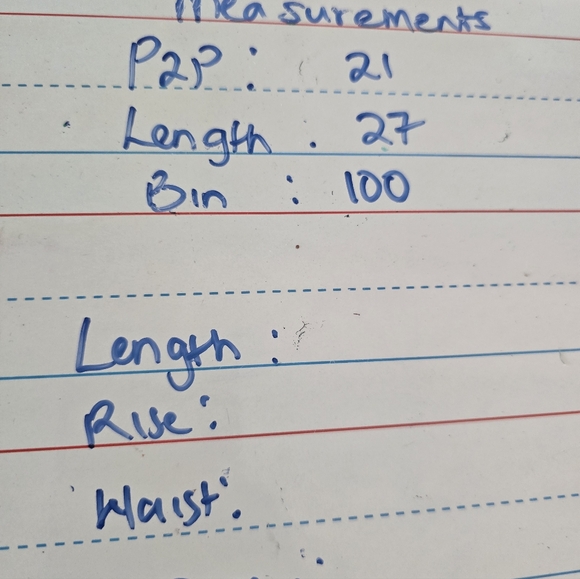 Measurements
P2P: 21
Length. 27
Bin : 100
Length:
Rise:
Waist: